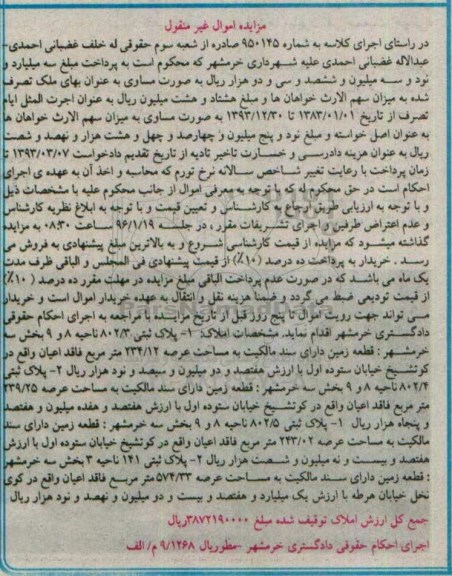 مزایده اموال غیر منقول
در راستای اجرای کلاسه به شماره ۹۵۰۱۴۵ صادره از شعبه سوم حقوقی له خلف غضبانی احمدی-
عبدالاله غضبانی احمدی علیه شهرداری خرمشهر که محکوم است به پرداخت مبلغ سه میلیارد و
نود و سه میلیون و ششصد و سی و دو هزار ریال به صورت مساوی به عنوان بهای ملک تصرف
شده به میزان سهم الارث خواهان ها و مبلغ هشتاد و هشت میلیون ریال به عنوان اجرت المثل ایام
تصرف از تاریخ ۱۳۸۳/۰۱/۰۱ تا ۱۳۹۳/۱۲/۳۰ به صورت مساوی به میزان سهم الارث خواهان ها
به عنوان اصل خواسته و مبلغ نود و پنج میلیون و چهارصد و چهل و هشت هزار و نهصد و شصت
ریال به عنوان هزینه دادرسی و خسارت تاخیر تادیه از تاریخ تقدیم دادخواست ۱۳۹۳/۰۳/۰۷ تا
زمان پرداخت با رعایت تغییر شاخص سالانه نرخ تورم که محاسبه و اخذ آن به عهده ی اجرای
احکام است در حق محکوم له که با توجه به معرفی اموال از جانب محکوم علیه با مشخصات ذیل
و با توجه به ارزیابی طی ارجاع به کارشناس و تعیین قیمت و با توجه به ابلاغ نظریه کارشناس
و عدم اعتراض طرفین و اجرای تشریفات مقرر، در جلسه ۹۶/۱/۱۹ ساعت ۰۸:۳۰ به مزایده
گذاشته میشود که مزایده از قیمت کارشناسی شروع و به بالاترین مبلغ پیشنهادی به فروش می
رسد . خریدار به پرداخت ده درصد (۱۰٪) از قیمت پیشنهادی فی المجلس و الباقی ظرف مدت
یک ماه می باشد که در صورت عدم پرداخت الباقی مبلغ مزایده در مهلت مقرر ده درصد (۱۰٪)
از قیمت تودیعی ضبط می گردد و ضمنا هزینه نقل و انتقال به عهده خریدار اموال است و خریدار
می تواند جهت رویت اموال تا پنج روز قبل از تاریخ مزایده با مراجعه به اجرای احکام حقوقی
دادگستری خرمشهر اقدام نماید. مشخصات املاک: ۱- پلاک ثبتی ۸۰۲/۳ ناحیه ۸ و ۹ بخش سه
خرمشهر : قطعه زمین دارای سند مالکیت به مساحت عرصه ۲۳۴/۱۲ متر مربع فاقد اعیان واقع در
کوتشیخ خیابان ستوده اول با ارزش هفتصد و دو میلیون و سیصد و نود هزار ریال ۲- پلاک ثبتی
۸۰۲/۴ ناحیه ۸ و ۹ بخش سه خرمشهر : قطعه زمین دارای سند مالکیت به مساحت عرصه ۲۳۹/۲۵
متر مربع فاقد اعیان واقع در کوتشیخ خیابان ستوده اول با ارزش هفتصد و هفده میلیون و هفتصد
و پنجاه هزار ریال ۱- پلاک ثبتی ۸۰۲/۵ ناحیه ۸ و ۹ بخش سه خرمشهر : قطعه زمین دارای سند
مالکیت به مساحت عرصه ۲۴۳/۰۲ متر مربع فاقد اعیان واقع در کوتشیخ خیابان ستوده اول با ارزش
هفتصد و بیست و نه میلیون و شصت هزار ریال ۲- پلاک ثبتی ۱۴۱ ناحیه ۳ بخش سه خرمشهر
: قطعه زمین دارای سند مالکیت به مساحت عرصه ۵۷۴/۳۳ متر مربع فاقد اعیان واقع در کوی
نخل خیابان هرطه با ارزش یک میلیارد و هفتصد و بیست و دو میلیون و نهصد و نود هزار ریال
جمع کل ارزش املاک توقیف شده مبلغ ۳۸۷۲۱۹۰۰۰۰ریال
اجرای احکام حقوقی دادگستری خرمشهر -مطوریال ۹/۱۲۶۸ م/ الف